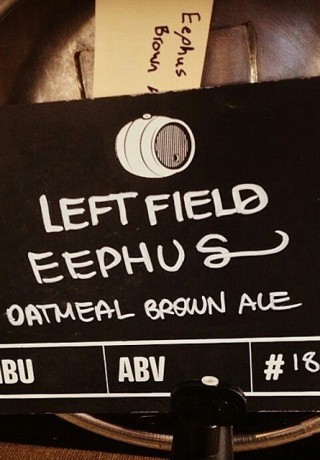 Eephus
Brown
LEFT FIELD
EEPHUS
OATMEAL BROWN ALE
IBU ABV #18